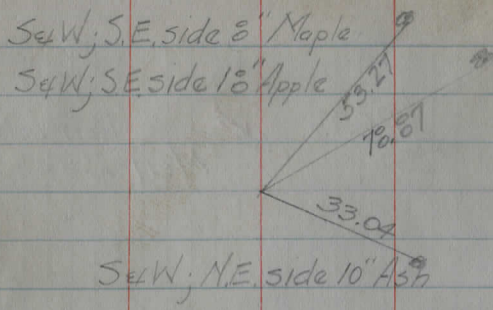 S&W; S.E. side 8" Maple
S&W; S.E. side 18" Apple
53.27
78.87
33.04
S&W; N.E. side 10" Ash